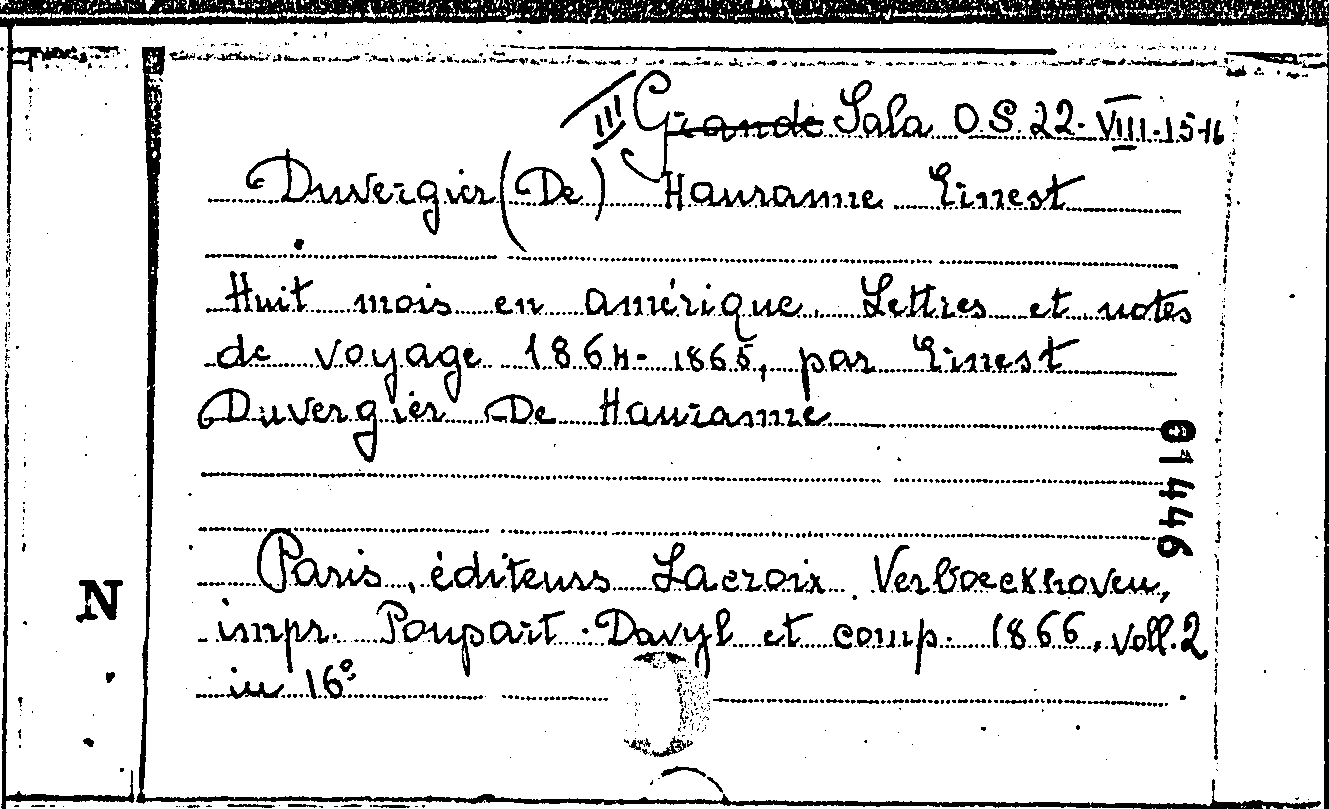 III Grande Sala O.S. 22. VIII. 15-16
Duvergier (De) Hauranne Ernest
Huit mois en Amérique. Lettres et notes
de voyage 1864-1865, par Ernest
Duvergier De Hauranne
01446
Paris, éditeurs Lacroix. Verboeckhoven,
N
impr. Poupart-Davyl et comp. 1866. voll. 2
in 16°